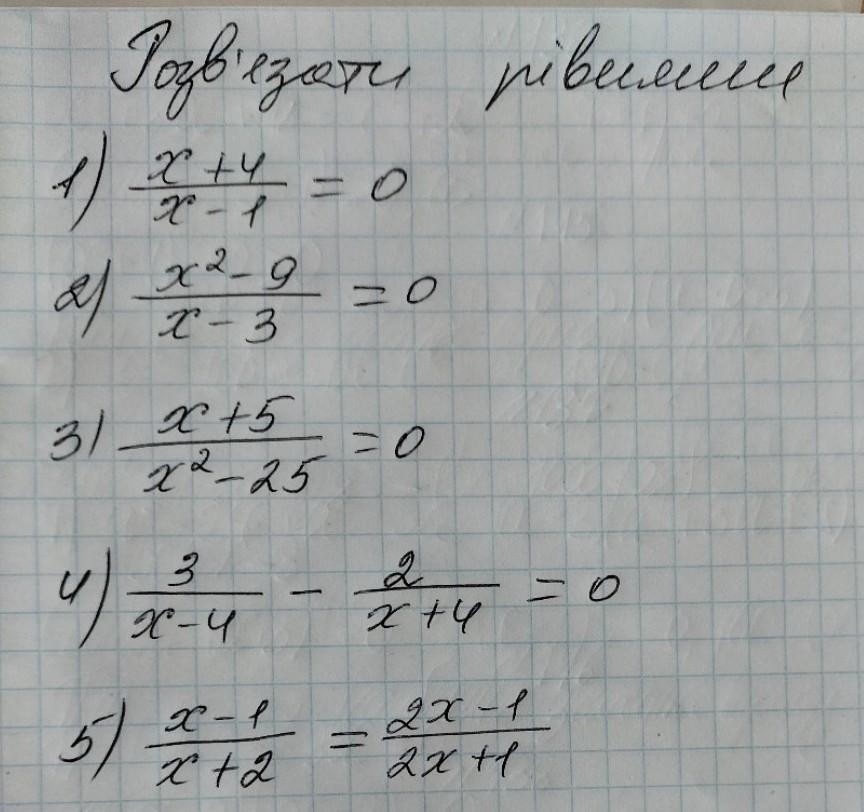 Розв'язати рівняння
1) (x+4)/(x-1) = 0
2) (x²-9)/(x-3) = 0
3) (x+5)/(x²-25) = 0
4) 3/(x-4) - 2/(x+4) = 0
5) (x-1)/(x+2) = (2x-1)/(2x+1)